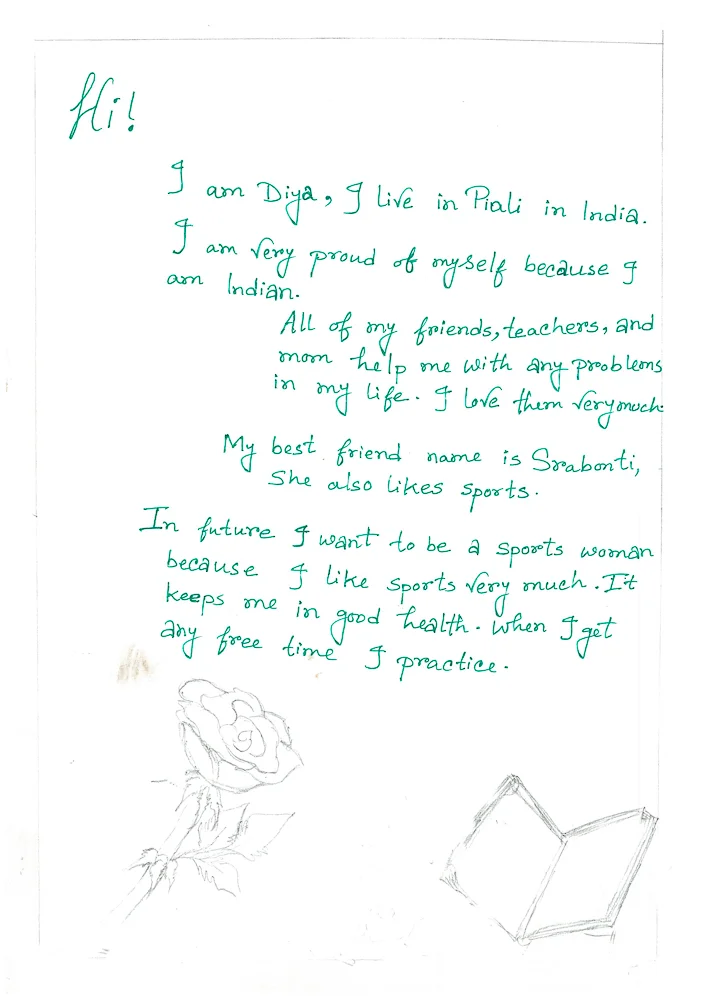 Hi!
I am Diya, I live in Piali in India.
I am very proud of myself because I
am Indian.
All of my friends, teachers, and
mom help me with any problems
in my life. I love them very much.
My best friend name is Srabonti,
She also likes sports.
In future I want to be a sports woman
because I like sports very much. It
keeps me in good health. When I get
any free time I practice.